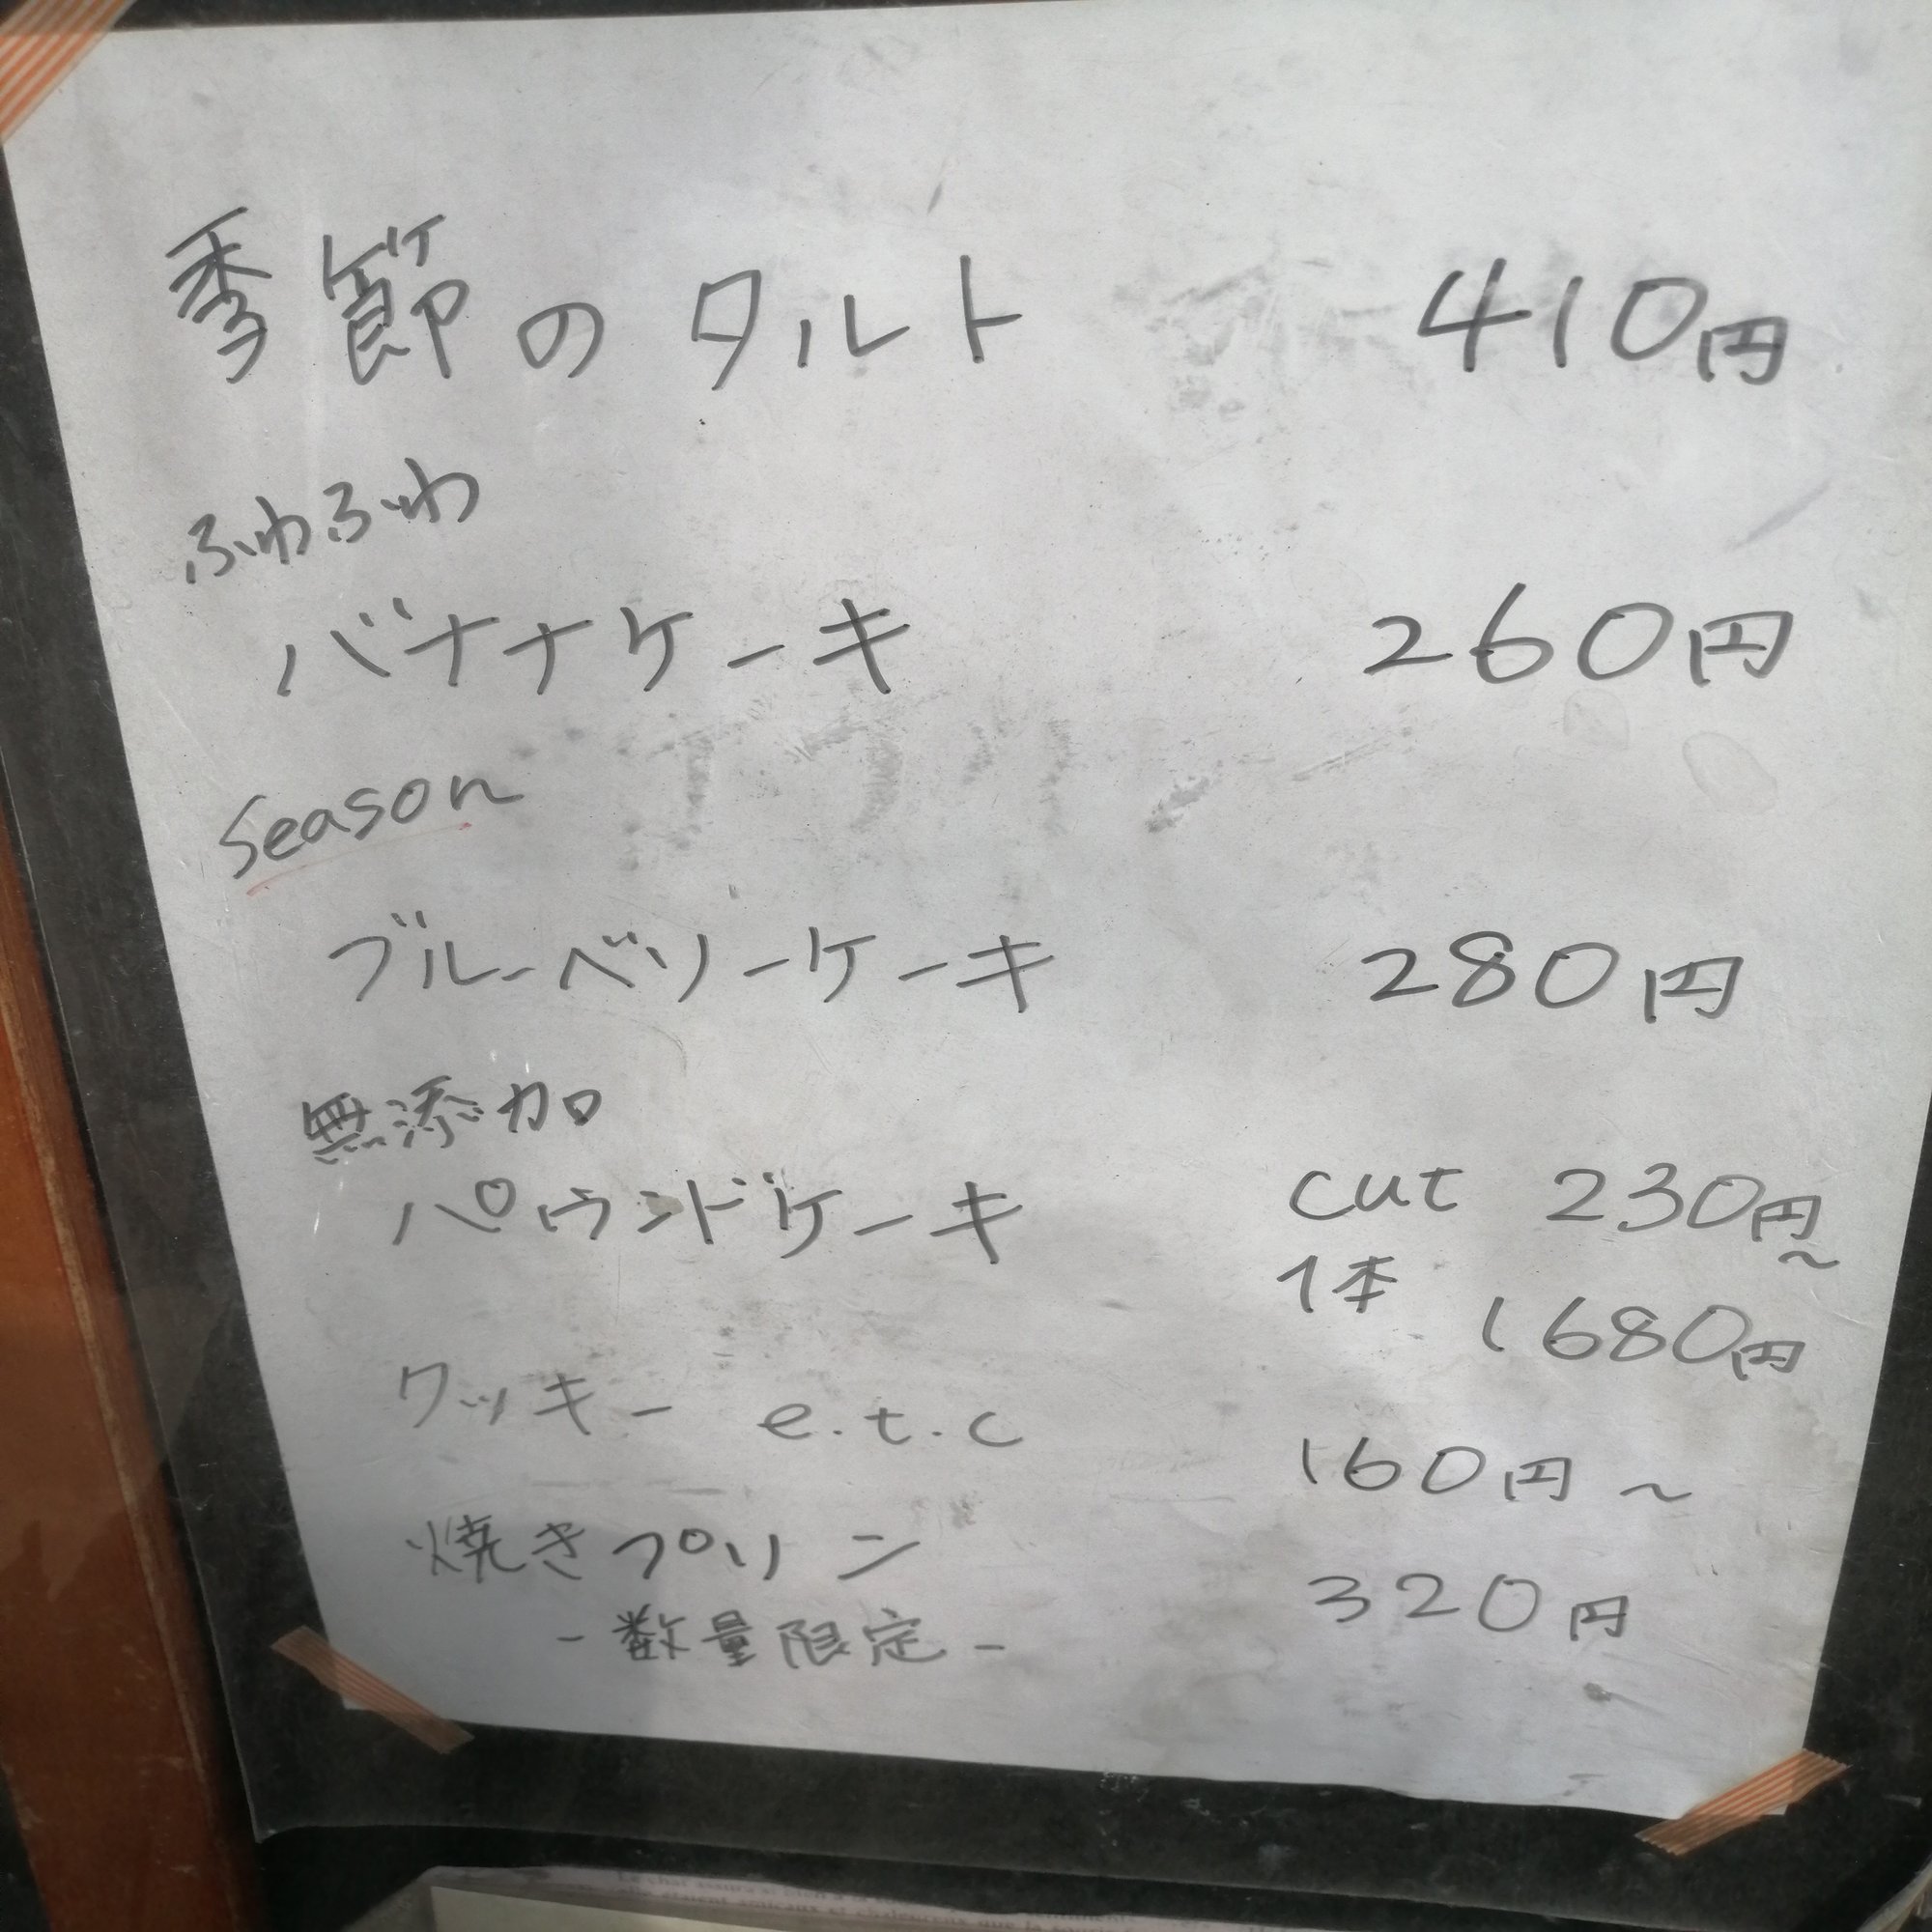 季節のタルト 410円
ふわふわ
バナナケーキ 260円
season
ブルーベリーケーキ 280円
無添加
パウンドケーキ cut 230円~
1本 1680円
クッキー e.t.c 160円~
焼きプリン 320円
-数量限定-